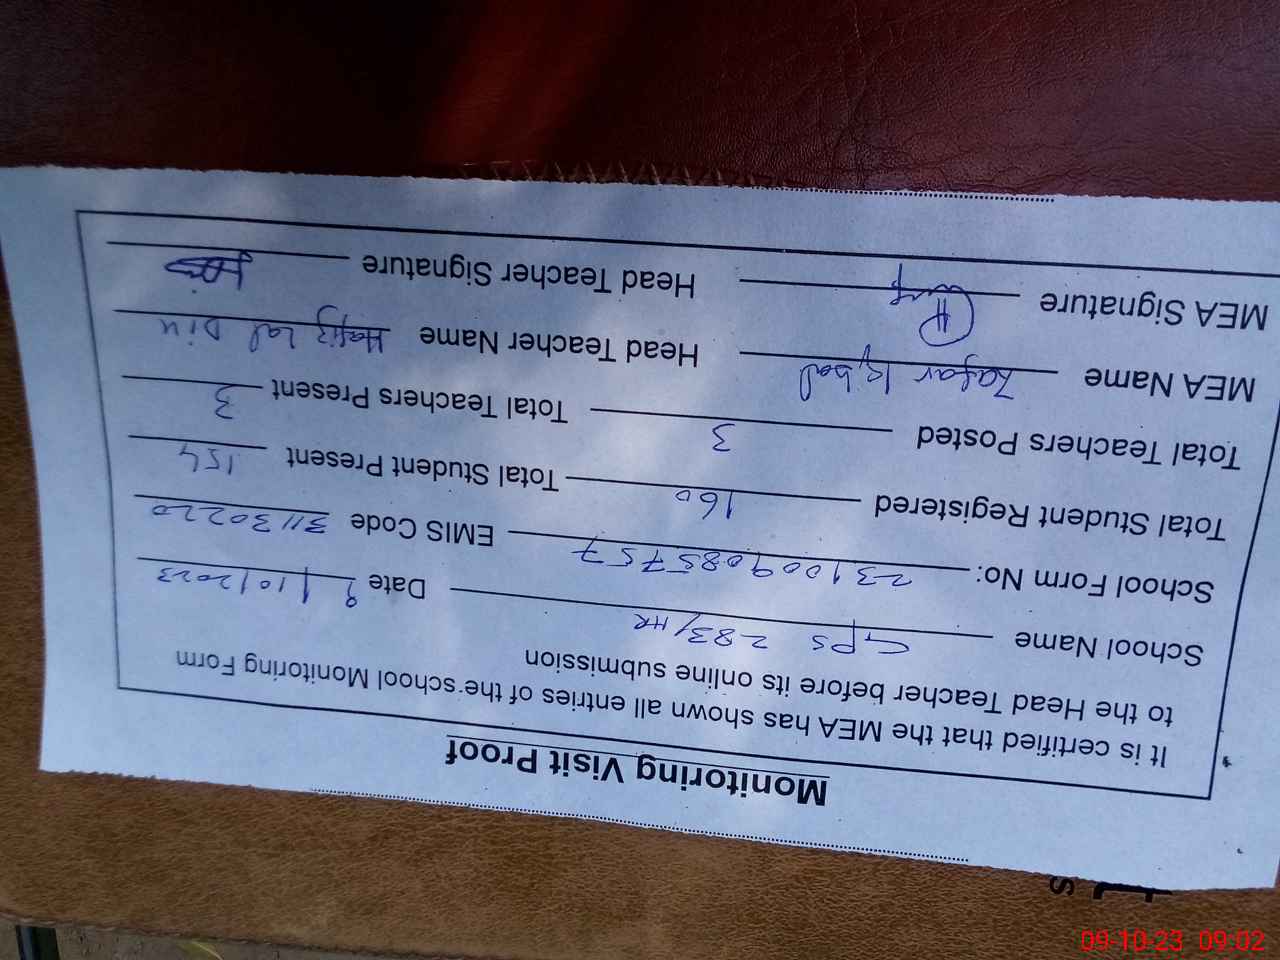 Monitoring Visit Proof
It is certified that the MEA has shown all entries of the school Monitoring Form
to the Head Teacher before its online submission
School Name GPS 283/HR Date 9/10/2023
School Form No: 231009085757 EMIS Code 31130220
Total Student Registered 160 Total Student Present 154
Total Teachers Posted 3 Total Teachers Present 3
MEA Name Zafar Iqbal Head Teacher Name Hafiz Lal Din
MEA Signature Head Teacher Signature
09-10-23 09:02